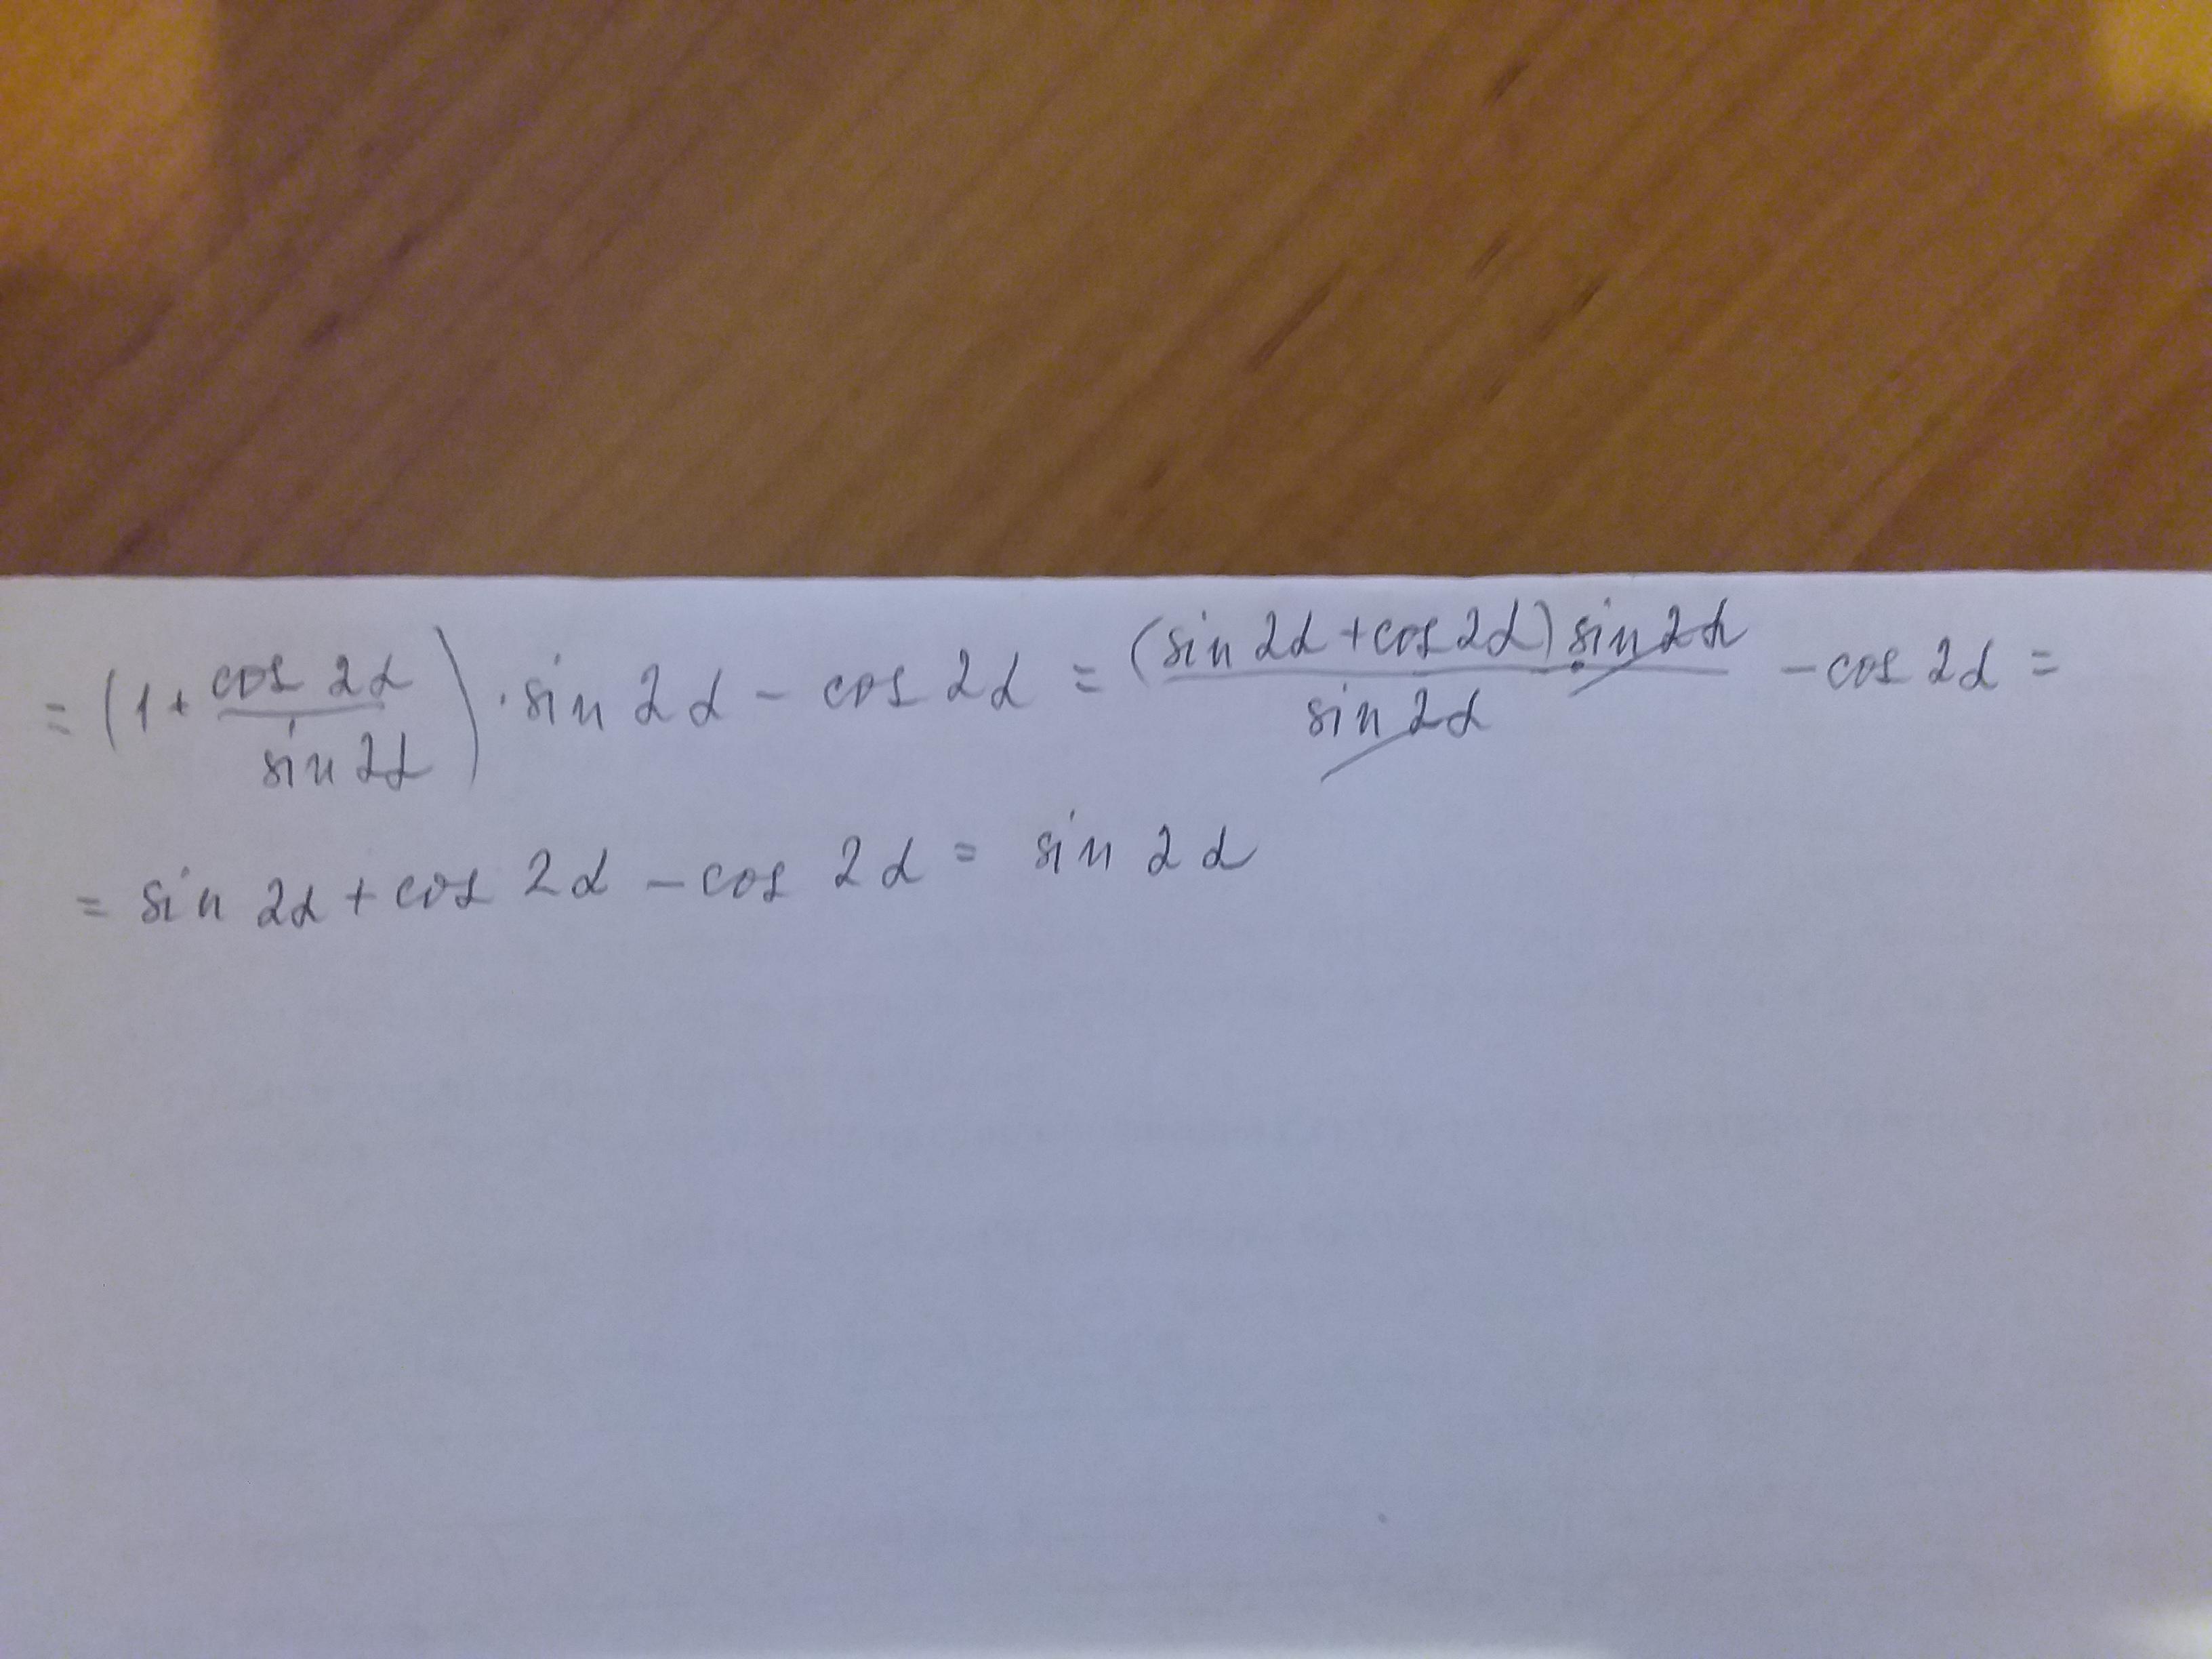 = (1 + cos 2α / sin 2α) · sin 2α − cos 2α = (sin 2α + cos 2α) sin 2α / sin 2α − cos 2α =
= sin 2α + cos 2α − cos 2α = sin 2α